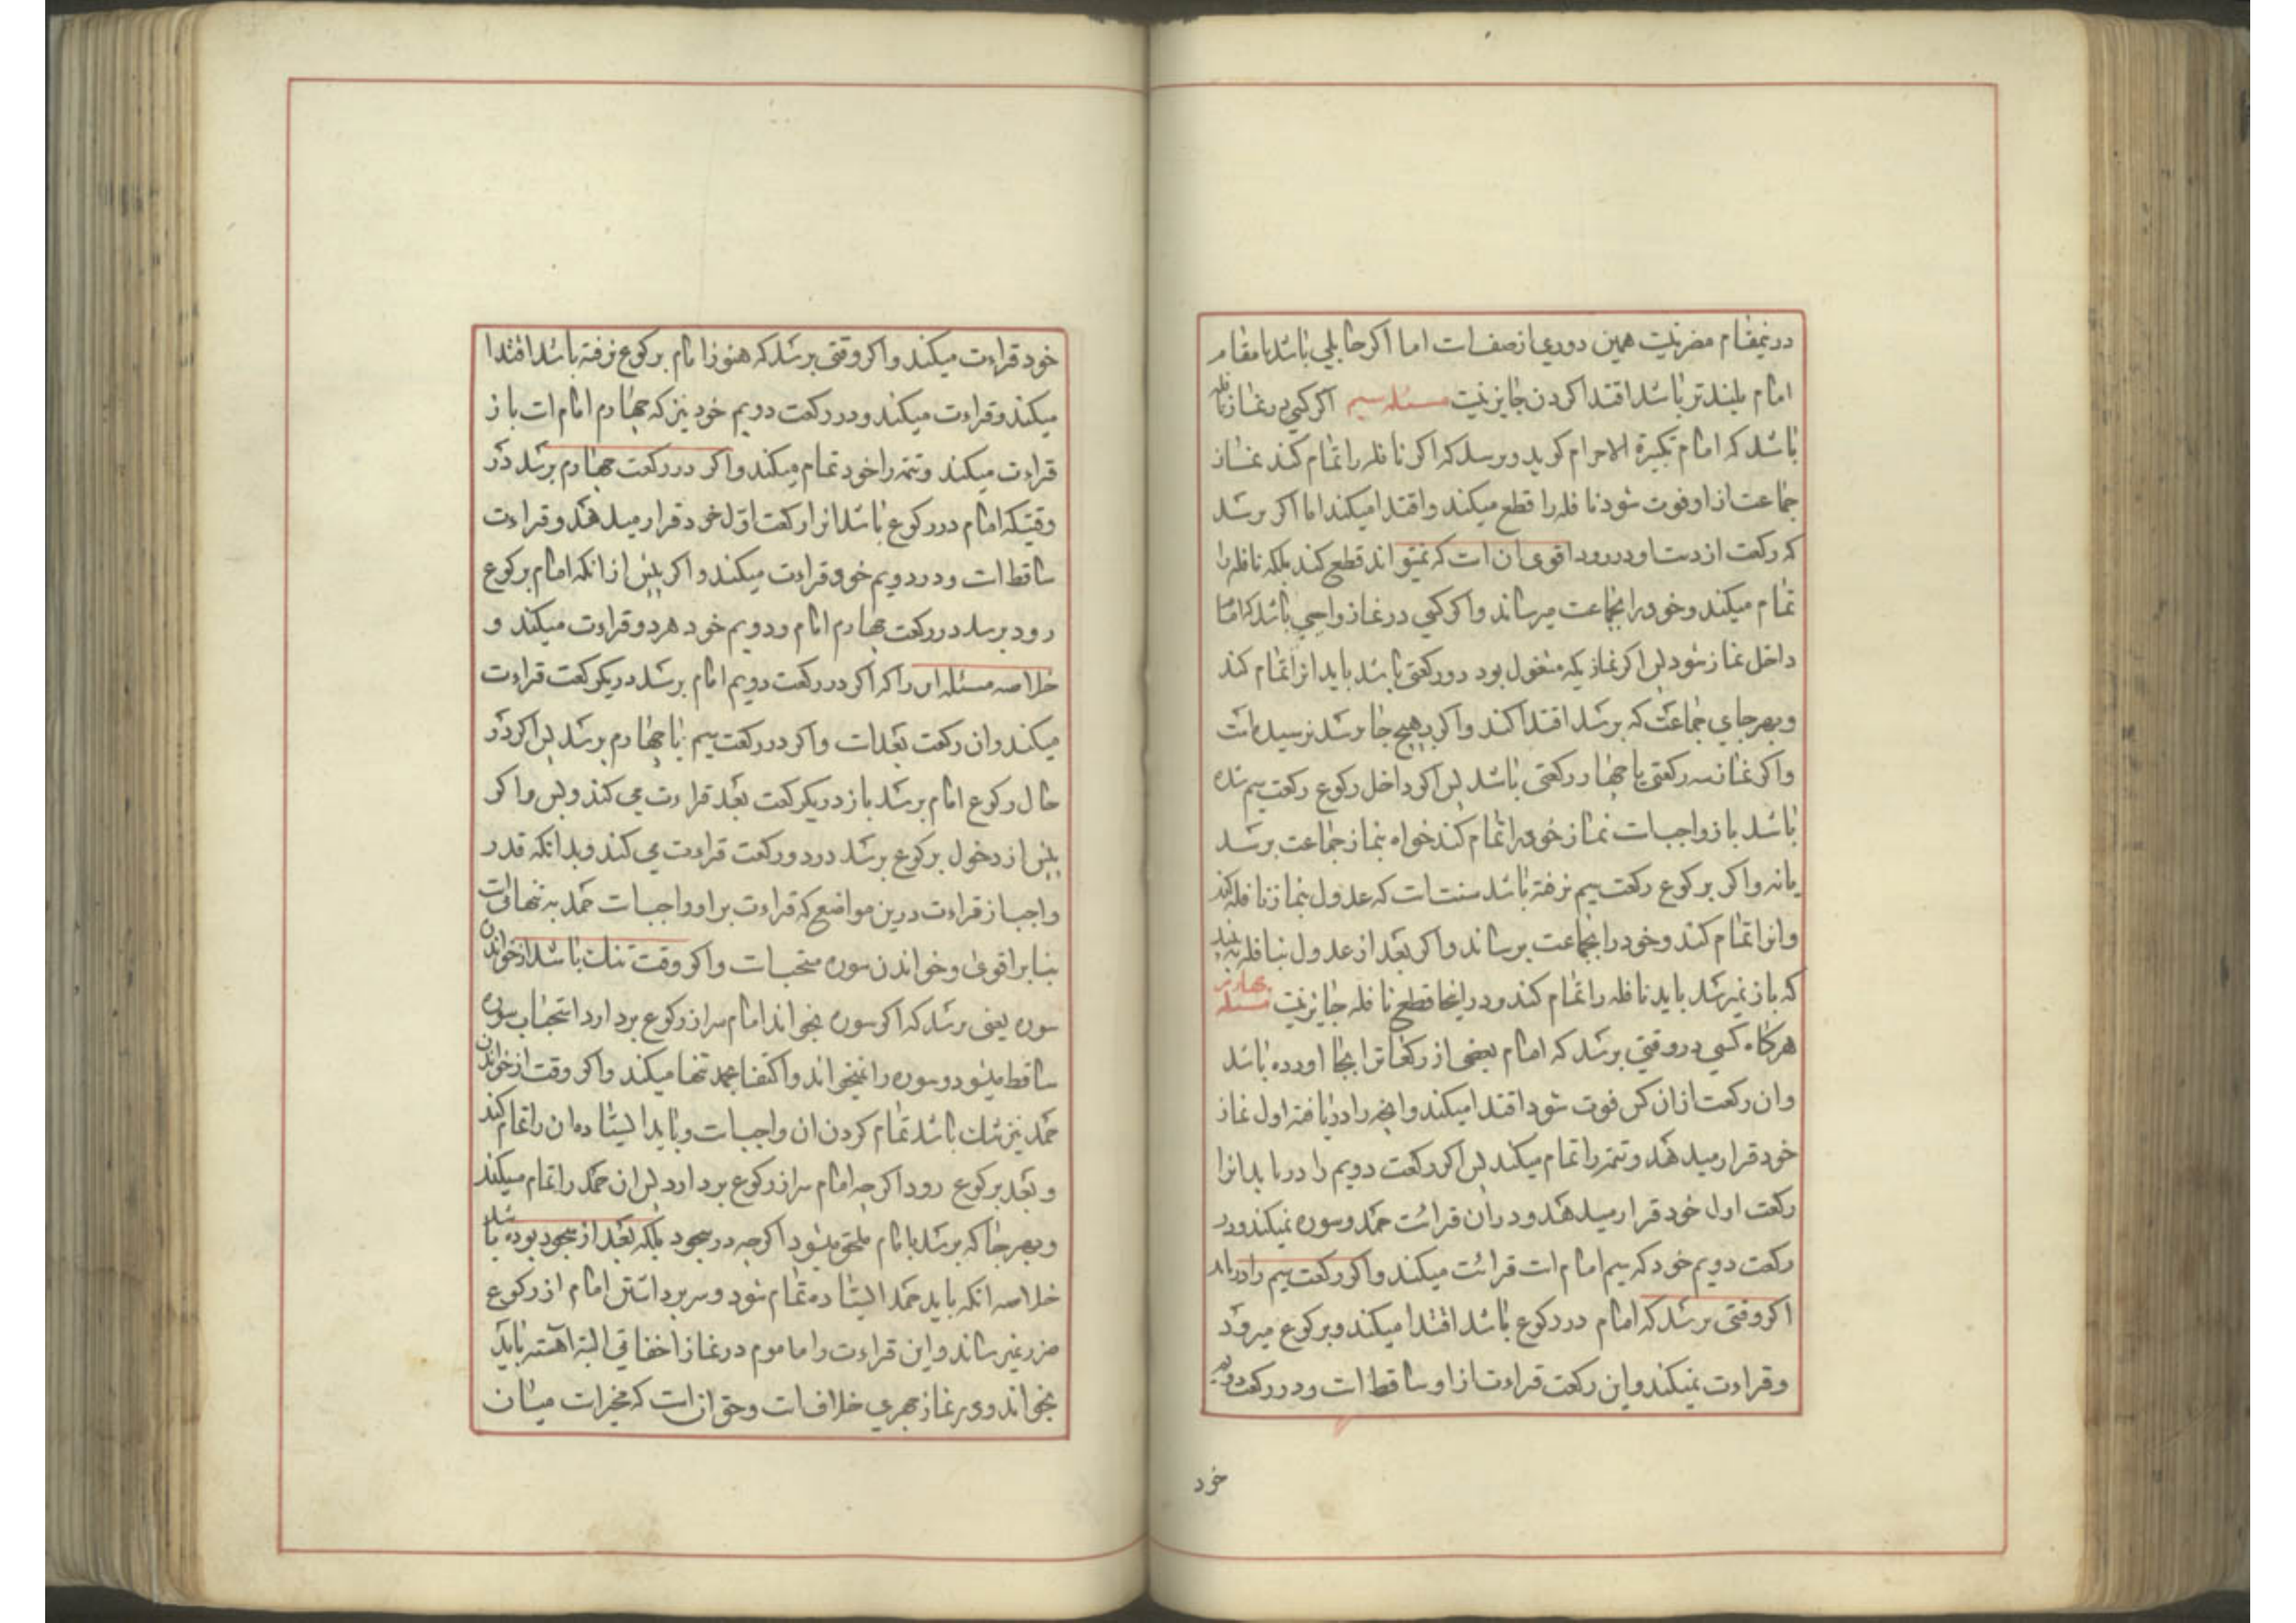 درینمقام مضر نیست همین دوری از صفست اما اکر حایلی باشد یا مقام
امام بلندتر باشد اقتدا کردن جایز نیست مسئله سیم اکر کسی در نماز نافله
باشد که امام تکبیرة الاحرام کوید و برسد که اکر نافله را تمام کند نماز
جماعت از او فوت شود نافله را قطع میکند و اقتدا میکند اما اکر برسد
که رکعت از دست او در رود اقوی ان است که نمیتواند قطع کند بلکه نافله را
تمام میکند و خود را بجماعت میرساند و اکر کسی در نماز واجبی باشد که امام
داخل نماز شود پس اکر نمازیکه مشغول بود دو رکعتی باشد باید انرا تمام کند
و بهر جای جماعت که برسد اقتدا کند و اکر بهیچ جا نرسد نرسیده است
و اکر نماز سه رکعتی یا چهار رکعتی باشد پس اکر داخل رکوع رکعت سیم شده
باشد باز واجبست نماز خود را تمام کند خواه بنماز جماعت برسد
یا نه و اکر برکوع رکعت سیم نرفته باشد سنت است که عدول بنماز نافله کند
و انرا تمام کند و خود را بجماعت برساند و اکر بعد از عدول بنافله به بیند
که باز نمیرسد باید نافله را تمام کند و در اینجا قطع نافله جایز نیست مسئله چهارم
هرکاه کسی در وقتی برسد که امام بعضی از رکعات را بجا اورده باشد
و ان رکعت از ان کس فوت شود اقتدا میکند و انچه را دریافته اول نماز
خود قرار میدهد و تتمه را تمام میکند پس اکر رکعت دویم را دریابد انرا
رکعت اول خود قرار میدهد و در ان قرائت حمد و سوره نمیکند و در
رکعت دویم خود که سیم امام است قرائت میکند و اکر رکعت سیم را دریابد
اکر وقتی برسد که امام در رکوع باشد اقتدا میکند و برکوع میرود
و قراءت نمیکند و این رکعت قراءت از او ساقط است و در رکعت دویم
خود
خود قراءت میکند و اکر وقتی برسد که هنوز امام برکوع نرفته باشد اقتدا
میکند و قراءت میکند و در رکعت دویم خود نیز که چهارم امام است باز
قراءت میکند و تتمه را خود تمام میکند و اکر در رکعت چهارم برسد در
وقتیکه امام در رکوع باشد انرا رکعت اول خود قرار میدهد و قراءت
ساقط است و در دویم خود قراءت میکند و اکر پیش از انکه امام برکوع
رود برسد در رکعت چهارم امام و دویم خود هر دو قراءت میکند و
خلاصه مسئله ان را که اکر در رکعت دویم امام برسد در یکرکعت قراءت
میکند و ان رکعت بعد است و اکر در رکعت سیم یا چهارم برسد پس اکر در
حال رکوع امام برسد باز در یکرکعت بعد قراءت می کند و بس و اکر
پیش از دخول برکوع برسد در دو رکعت قراءت می کند و بدانکه قدر
واجب از قراءت درین مواضع که قراءت بر او واجبست حمد به تنهائیست
بنا بر اقوی و خواندن سوره مستحبست و اکر وقت تنک باشد از خواندن
سوره یعنی برسد که اکر سوره بخواند امام سر از رکوع بردارد استحباب سوره
ساقط میشود و سوره را نمیخواند و اکتفا بحمد تنها میکند و اکر وقت از خواندن
حمد نیز تنک باشد تمام کردن ان واجبست و باید ایستاده ان را تمام کند
و بعد برکوع رود اکرچه امام سر از رکوع بردارد پس ان حمد را تمام میکند
و بهر جا که برسد بامام ملحق میشود اکرچه در سجود بلکه بعد از سجود بوده باشد
خلاصه انکه باید حمد ایستاده تمام شود و سر برداشتن امام از رکوع
ضرر نمیرساند و این قراءت را ماموم در نماز اخفاتی البته اهسته باید
بخواند و در نماز جهری خلافست و حق ان است که مخیر است میان